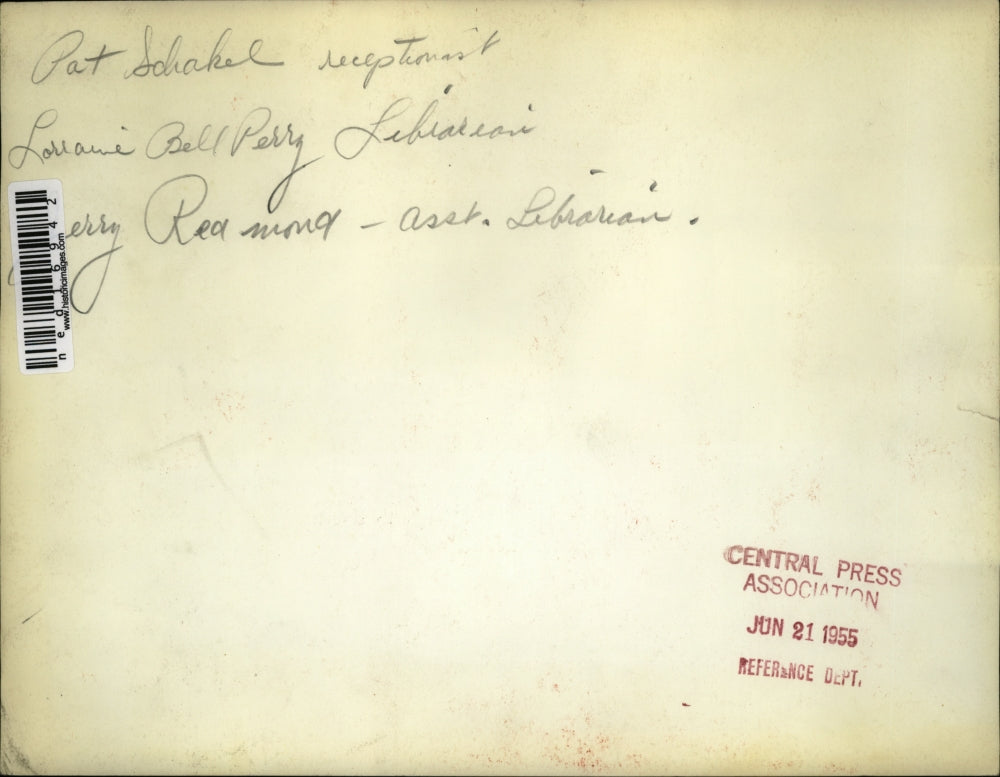 Pat Schakel receptionist
Lorraine Bell Perry Librarian
erry Redmond - asst. Librarian.
ned16942
www.historicimages.com
CENTRAL PRESS
ASSOCIATION
JUN 21 1955
REFERENCE DEPT.